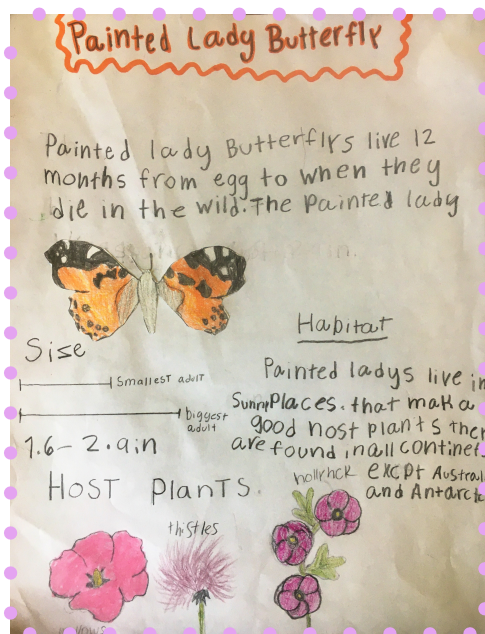 Painted Lady Butterfly
Painted lady Butterflys live 12
months from egg to when they
die in the wild. The Painted lady
Size
Smallest adult
biggest
adult
1.6 - 2.9in
Habitat
Painted ladys live in
Sunny Places. that mak a
good host plants ther
are found in all continet
excpt Austral
and Antarctc
HOST Plants.
thistles
hollyhck